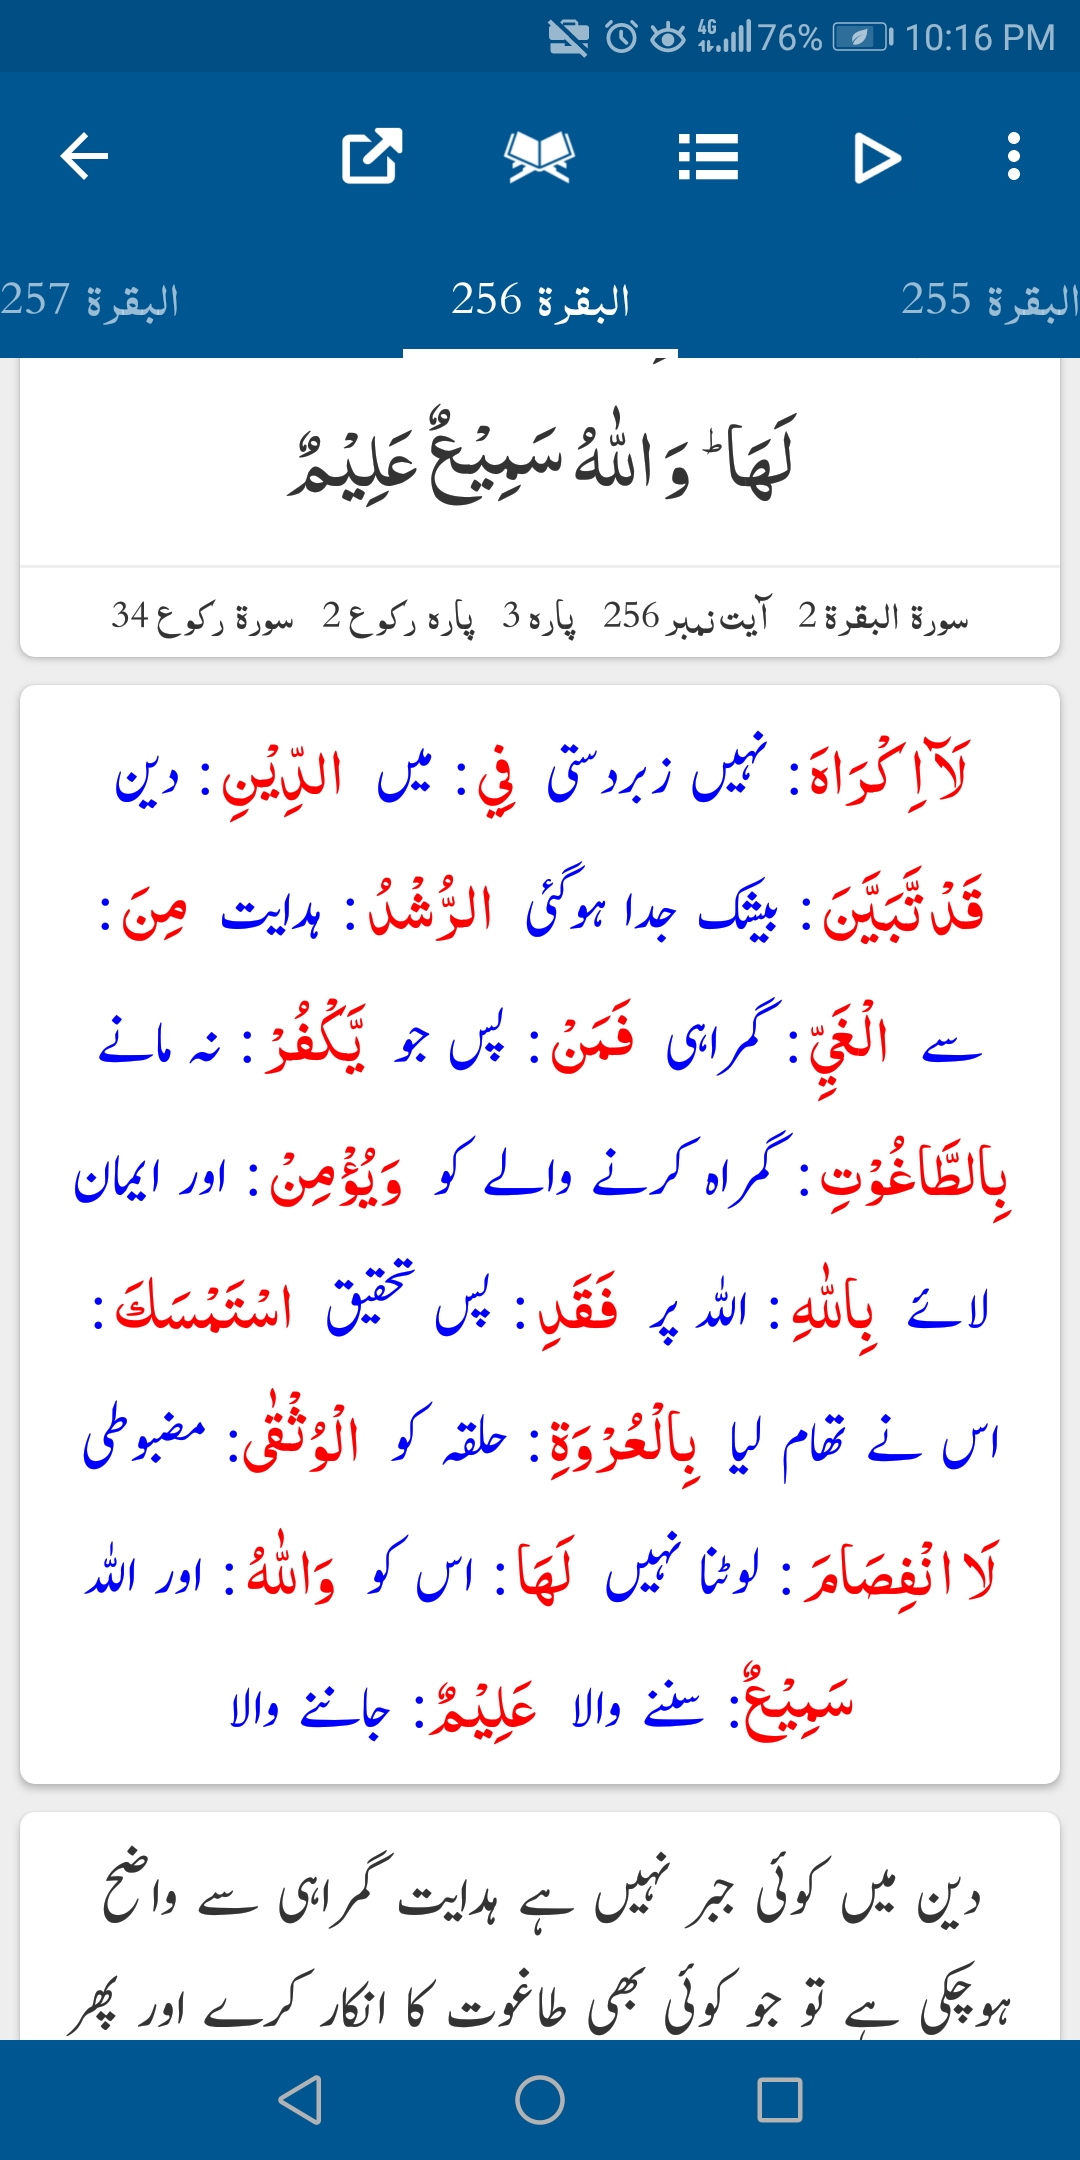 4G 76% 10:16 PM
البقرة 255 البقرة 256 البقرة 257
لَهَا ؕ وَ اللّٰهُ سَمِيْعٌ عَلِيْمٌ
سورة البقرة 2 آیت نمبر 256 پاره 3 پاره رکوع 2 سورة رکوع 34
لَآ اِكْرَاهَ: نہیں زبردستی فِي: میں الدِّيْنِ: دین
قَدْ تَّبَيَّنَ: بیشک جدا ہوگئی الرُّشْدُ: ہدایت مِنَ:
سے الْغَيِّ: گمراہی فَمَنْ: پس جو يَّكْفُرْ: نہ مانے
بِالطَّاغُوْتِ: گمراہ کرنے والے کو وَيُؤْمِنْ: اور ایمان
لائے بِاللّٰهِ: اللہ پر فَقَدِ: پس تحقیق اسْتَمْسَكَ:
اس نے تھام لیا بِالْعُرْوَةِ: حلقہ کو الْوُثْقٰى: مضبوطی
لَا انْفِصَامَ: لوٹنا نہیں لَهَا: اس کو وَاللّٰهُ: اور اللہ
سَمِيْعٌ: سننے والا عَلِيْمٌ: جاننے والا
دین میں کوئی جبر نہیں ہے ہدایت گمراہی سے واضح
ہوچکی ہے تو جو کوئی بھی طاغوت کا انکار کرے اور پھر